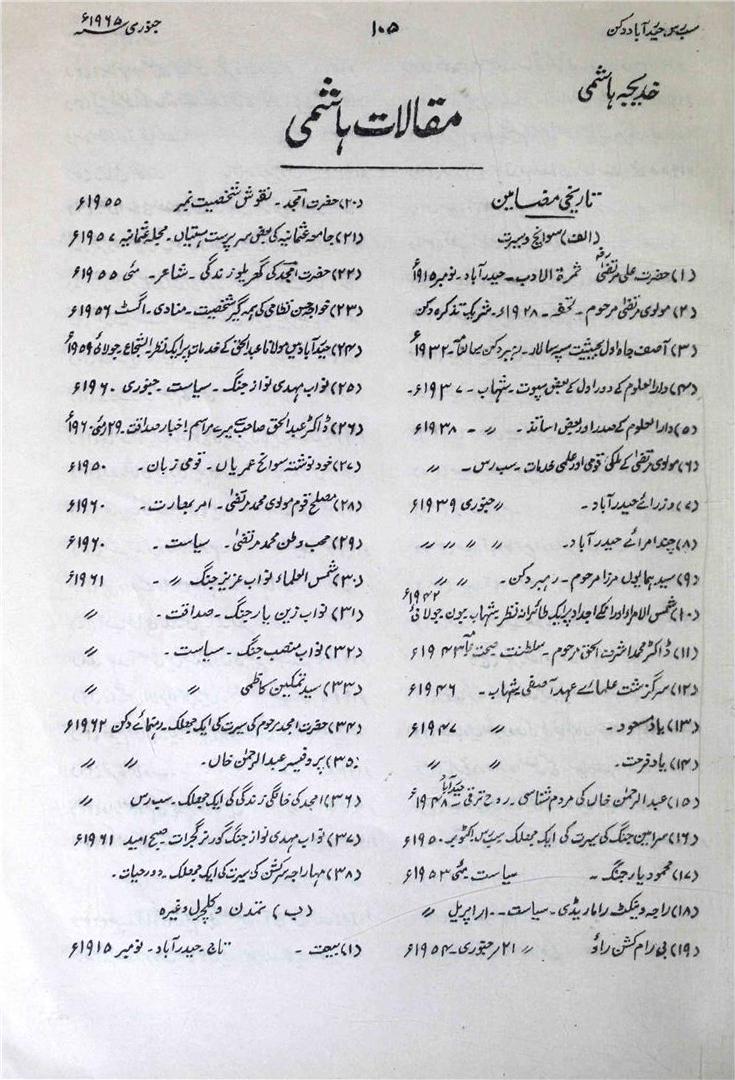 سب رس، حیدرآباد دکن
۱۰۵
جنوری ۱۹۶۵ء
خدیجہ ہاشمی
مقالات ہاشمی
تاریخی مضامین
(الف) سوانح و سیرت
(۱) حضرت علی مرتضیٰ ثمرۃ الادب۔ حیدرآباد۔ نومبر ۱۹۱۵ء
(۲) مولوی مرتضیٰ مرحوم۔ تحفہ۔ ۱۹۲۸ء۔ شریک تذکرہ دکن
(۳) آصف جاہ اول بحیثیت سپہ سالار۔ رہبر دکن سالنامہ ۱۹۳۲ء
(۴) دارالعلوم کے دور اول کے بعض سپوت۔ شہاب۔ ۱۹۳۷ء۔
(۵) دارالعلوم کے صدر اور بعض اساتذہ۔ 〃 ۔ ۱۹۳۸ء
(۶) مولوی مرتضیٰ کے ملکی قومی اور علمی خدمات۔ سب رس۔ 〃
(۷) وزرائے حیدرآباد۔ 〃 جنوری ۱۹۳۹ء
(۸) چند امرائے حیدرآباد۔ 〃 〃 〃 〃
(۹) سید ہمایوں مرزا مرحوم۔ رہبر دکن۔ 〃 〃
(۱۰) شمس الامراء اور انکے اجداد پر ایک طائرانہ نظر شہاب جون جولائی ۱۹۴۲ء
(۱۱) ڈاکٹر محمد اشرف الحق مرحوم۔ سلطنت صبح ۱۹۴۳ء
(۱۲) سرگزشت علمائے عہد آصفی شہاب۔ ۱۹۴۶ء
(۱۳) یاد مسعود۔ 〃 ۱۹۴۷ء
(۱۴) یاد فرحت۔ 〃 〃
(۱۵) عبدالرحمٰن خاں کی مردم شناسی۔ روح ترقی حیدرآباد ۱۹۴۸ء
(۱۶) سر امین جنگ کی سیرت کی ایک جھلک سب رس اکٹوبر ۱۹۵۰ء
(۱۷) محمود یار جنگ۔ سیاست مئی ۱۹۵۳ء
(۱۸) راجہ وینکٹ راما ریڈی۔ سیاست۔ ۱۰ اپریل 〃
(۱۹) بی رام کشن راؤ 〃 ۲۱ جنوری۔ ۱۹۵۴ء
(۲۰) حضرت امجد۔ نقوش شخصیت نمبر ۱۹۵۵ء
(۲۱) جامعہ عثمانیہ کی بعض سرپرست ہستیاں۔ مجلہ عثمانیہ ۱۹۵۷ء
(۲۲) حضرت امجد کی گھریلو زندگی۔ شاعر۔ مئی ۱۹۵۵ء
(۲۳) خواجہ حسن نظامی کی ہمہ گیر شخصیت۔ منادی۔ اگسٹ ۱۹۵۶ء
(۲۴) حیدرآباد میں مولانا عبدالحق کے خدمات پر ایک نظر۔ الشجاع۔ جولائی ۱۹۵۹ء
(۲۵) نواب مہدی نواز جنگ۔ سیاست۔ جنوری ۱۹۶۰ء
(۲۶) ڈاکٹر عبدالحق صاحب سے میرے مراسم۔ اخبار صداقت۔ ۲۹ مئی ۱۹۶۰ء
(۲۷) خود نوشتہ سوانح عمریاں۔ قومی زبان۔ ۱۹۵۰ء
(۲۸) مصلح قوم مولوی محمد مرتضیٰ۔ امر بھارت۔ ۱۹۶۰ء
(۲۹) محب وطن محمد مرتضیٰ۔ سیاست۔ ۱۹۶۰ء
(۳۰) شمس العلماء نواب عزیز جنگ 〃 ۔ ۱۹۶۱ء
(۳۱) نواب زین یار جنگ۔ صداقت۔ 〃
(۳۲) نواب منصب جنگ۔ سیاست۔ 〃
(۳۳) سید تمکین کاظمی 〃 〃
(۳۴) حضرت امجد مرحوم کی سیرت کی ایک جھلک۔ رہنمائے دکن ۱۹۶۲ء
(۳۵) پروفیسر عبدالرحمٰن خاں۔ 〃 〃
(۳۶) امجد کی خانگی زندگی کی ایک جھلک۔ سب رس 〃
(۳۷) نواب مہدی نواز جنگ گورنر گجرات۔ صبح امید ۱۹۶۱ء
(۳۸) مہاراجہ سر کشن کی سیرت کی ایک جھلک۔ دور حیات۔
(ب) تمدن و کلچرل وغیرہ
(۱) بیعت۔ تاج۔ حیدرآباد۔ نومبر ۱۹۱۵ء